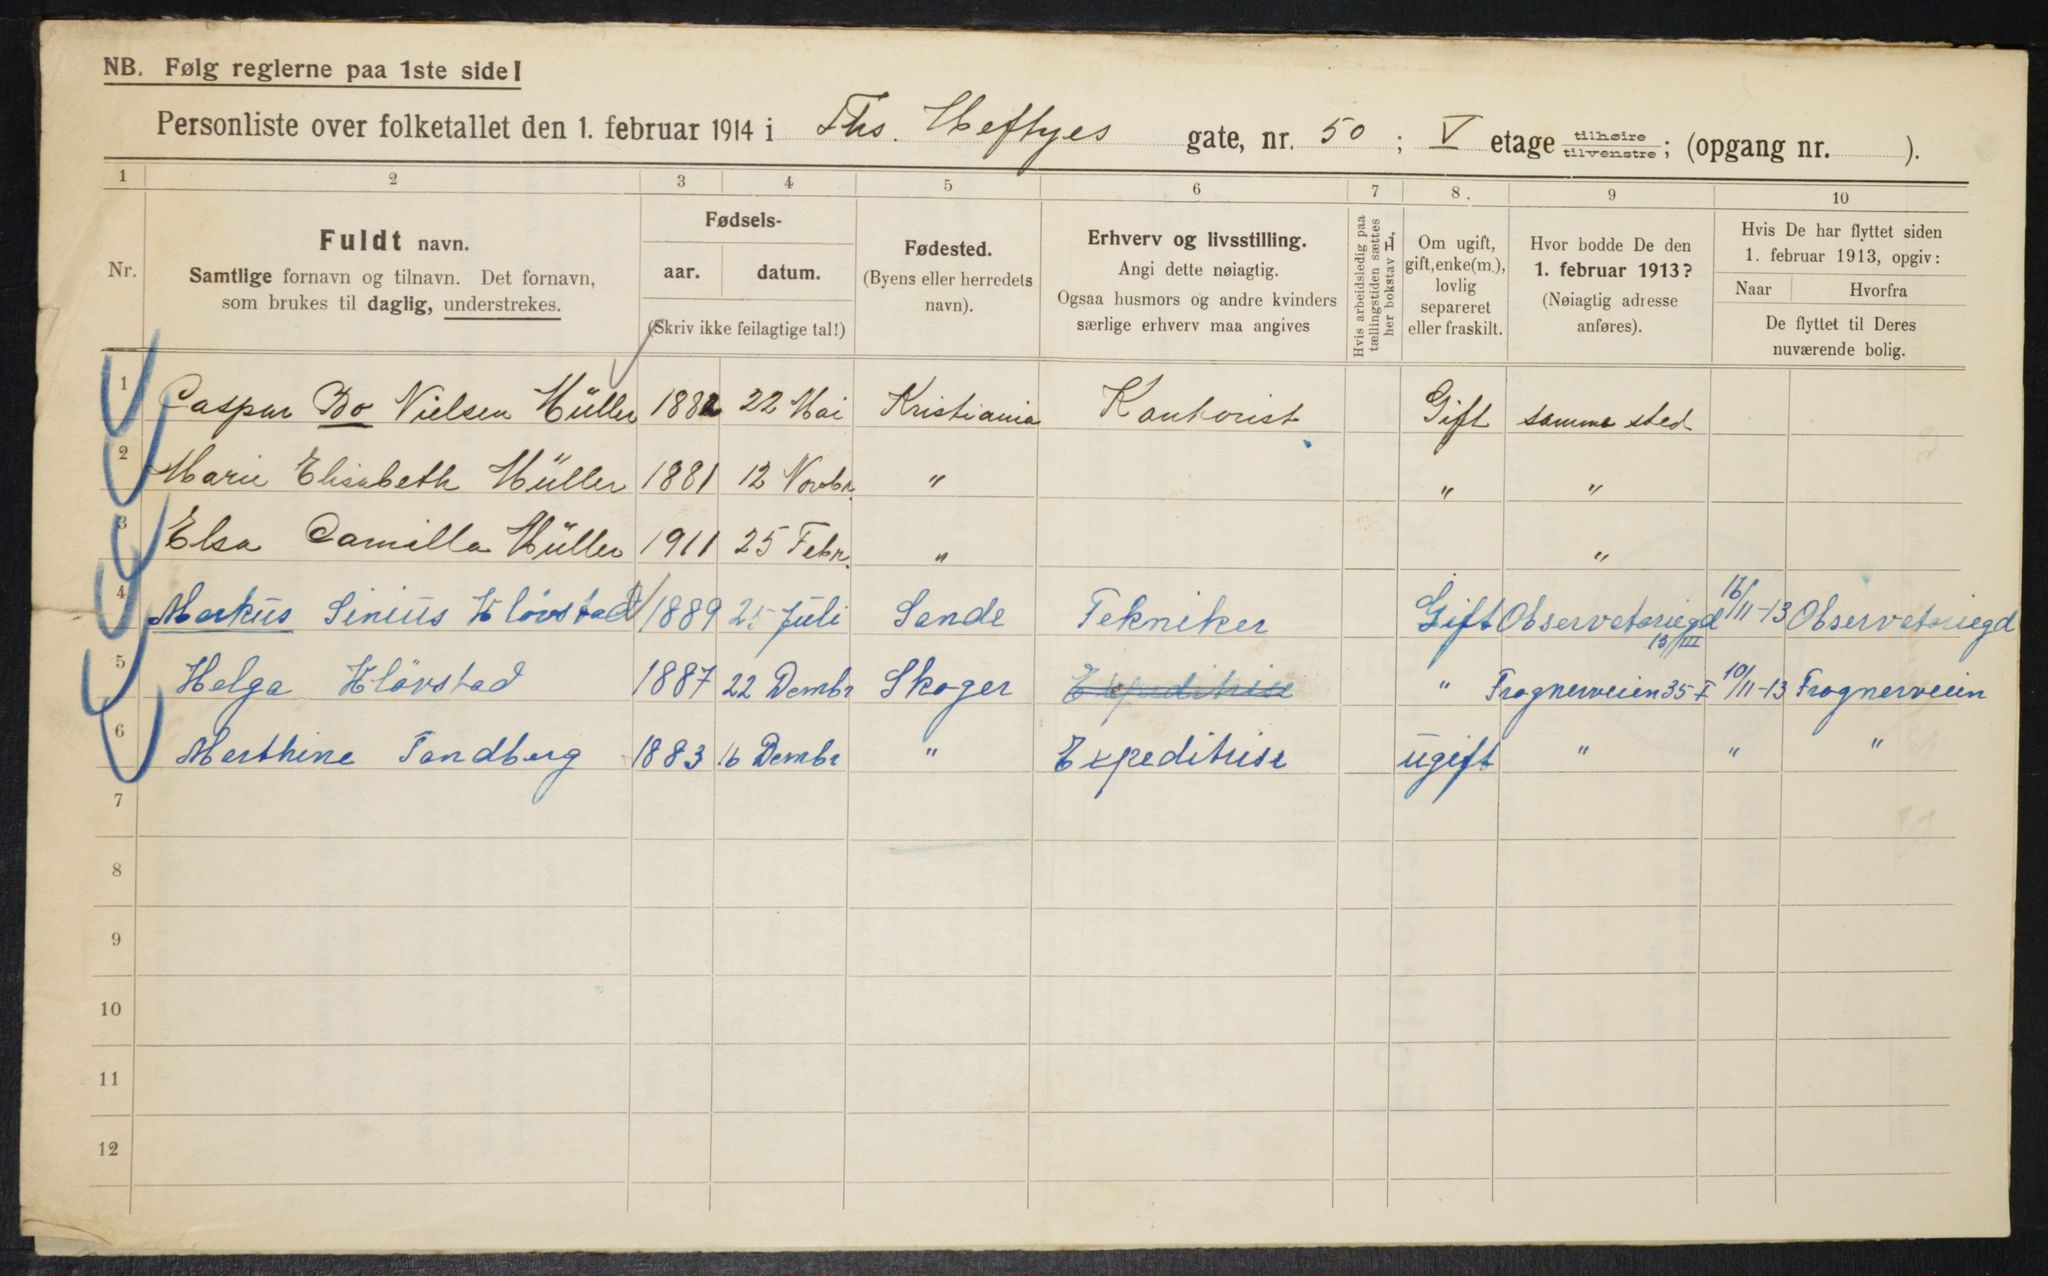 NB. Følg reglerne paa 1ste side!
Personliste over folketallet den 1. februar 1914 i Ths. Heftyes gate, nr. 50 ; V etage tilhøire tilvenstre ; (opgang nr. ).
1 2 3 4 5 6 7 8. 9 10
Nr.
Fuldt navn.
Samtlige fornavn og tilnavn. Det fornavn,
som brukes til daglig, understrekes.
Fødsels-
aar. datum.
(Skriv ikke feilagtige tal!)
Fødested.
(Byens eller herredets
navn).
Erhverv og livsstilling.
Angi dette nøiagtig.
Ogsaa husmors og andre kvinders
særlige erhverv maa angives
Hvis arbeidsledig paa
tællingstiden sættes
her bokstav L.
Om ugift,
gift, enke(m.),
lovlig
separeret
eller fraskilt.
Hvor bodde De den
1. februar 1913?
(Nøiagtig adresse
anføres).
Hvis De har flyttet siden
1. februar 1913, opgiv:
Naar Hvorfra
De flyttet til Deres
nuværende bolig.
1 Caspar Bo Nielsen Müller 1882 22 Mai Kristiania Kontorist Gift samme sted
2 Marie Elisabeth Müller 1881 12 Novbr. " " "
3 Elsa Camilla Müller 1911 25 Febr. " "
4 Markus Sinius Kløvstad 1889 25 Juli Sande Tekniker Gift Observatoriegd 13/III 16/11-13 Observatoriegd
5 Helga Klövstad 1887 22 Dembr Skoger Expeditrise " Frognerveien 35 I 10/11-13 Frognerveien
6 Marthine Tandberg 1883 16 Dembr " Expeditrise ugift " " "
7
8
9
10
11
12